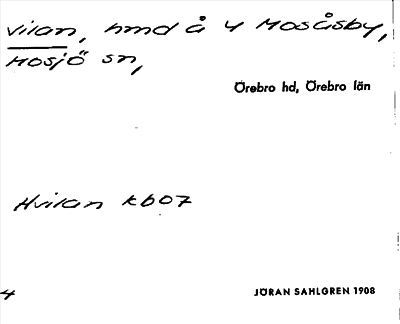 Vilan, hmd å 4 Mosåsby,
Mosjö sn,
Örebro hd, Örebro län
Hvilan kb07
4
JÖRAN SAHLGREN 1908